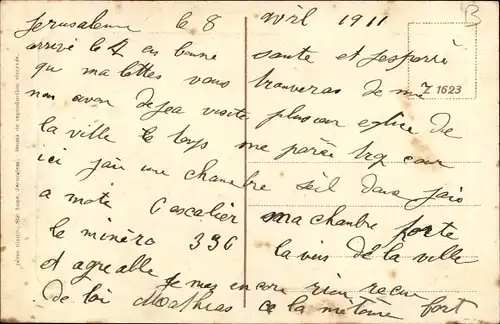 Jerusalem le 8 avril 1911
arrivé le 4 en bonne sante et jesperè
que ma lettes vous trouveras de me
non avon dejea visite plusour eglise de
la ville le temps me parée trop cour
ici jai une chambre seil dans jais
a mote 6 escalier ma chambre forte
le minéro 336 la vus de la ville
et agreable je mes encore rien recue
de toi Mathias ce la métoire fort
Z 1623
Droits de reproduction réservés.